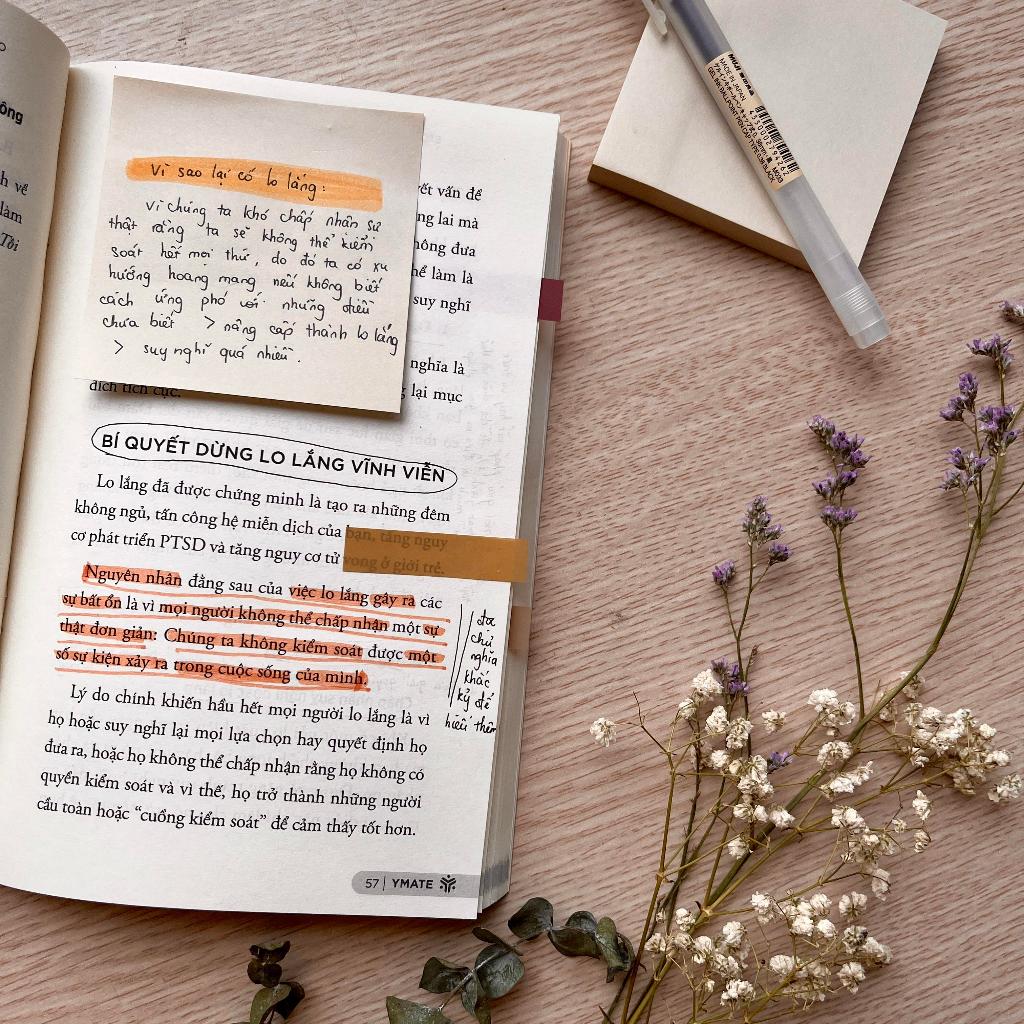 ông
h về
làm
Tôi
Vì sao lại có lo lắng:
Vì chúng ta khó chấp nhận sự
thật rằng ta sẽ không thể kiểm
soát hết mọi thứ, do đó ta có xu
hướng hoang mang nếu không biết
cách ứng phó với những điều
chưa biết > nâng cấp thành lo lắng
> suy nghĩ quá nhiều.
ết vấn đề
ng lai mà
hông đưa
hể làm là
suy nghĩ
nghĩa là
g lại mục
đích tích cực.
BÍ QUYẾT DỪNG LO LẮNG VĨNH VIỄN
Lo lắng đã được chứng minh là tạo ra những đêm
không ngủ, tấn công hệ miễn dịch của bạn, tăng nguy
cơ phát triển PTSD và tăng nguy cơ tử vong ở giới trẻ.
Nguyên nhân đằng sau của việc lo lắng gây ra các
sự bất ổn là vì mọi người không thể chấp nhận một sự
thật đơn giản: Chúng ta không kiểm soát được một
số sự kiện xảy ra trong cuộc sống của mình.
đọc
chủ
nghĩa
khắc
kỷ để
hiểu thêm
Lý do chính khiến hầu hết mọi người lo lắng là vì
họ hoặc suy nghĩ lại mọi lựa chọn hay quyết định họ
đưa ra, hoặc họ không thể chấp nhận rằng họ không có
quyền kiểm soát và vì thế, họ trở thành những người
cầu toàn hoặc “cuồng kiểm soát” để cảm thấy tốt hơn.
57 | YMATE
MUJI 無印良品
MADE IN JAPAN
GEL INK BALLPOINT PEN CAP TYPE 0.38 BLACK
4 550002 194262